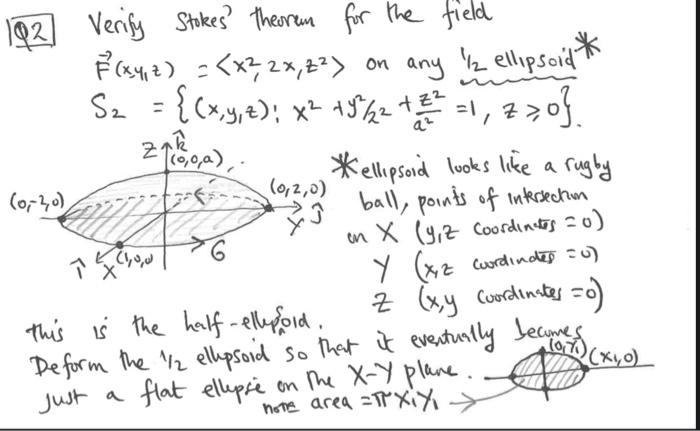 Q2 Verify Stokes' theorem for the field
F⃗(x,y,z) = <x², 2x, z²> on any 1/2 ellipsoid *
S₂ = {(x,y,z): x² + y²/2² + z²/a² = 1, z ≥ 0}.
Z k̂
(0,0,a)
(0,-2,0)
(0,2,0)
Y ĵ
î X (1,0,0)
* ellipsoid looks like a rugby
ball, points of intersection
on X (y,z coordinates = 0)
Y (x,z coordinates = 0)
Z (x,y coordinates = 0)
This is the half-ellipsoid.
Deform the 1/2 ellipsoid so that it eventually becomes
just a flat ellipse on the X-Y plane.
(0,Y₁)
(X₁,0)
note area = π X₁Y₁ →